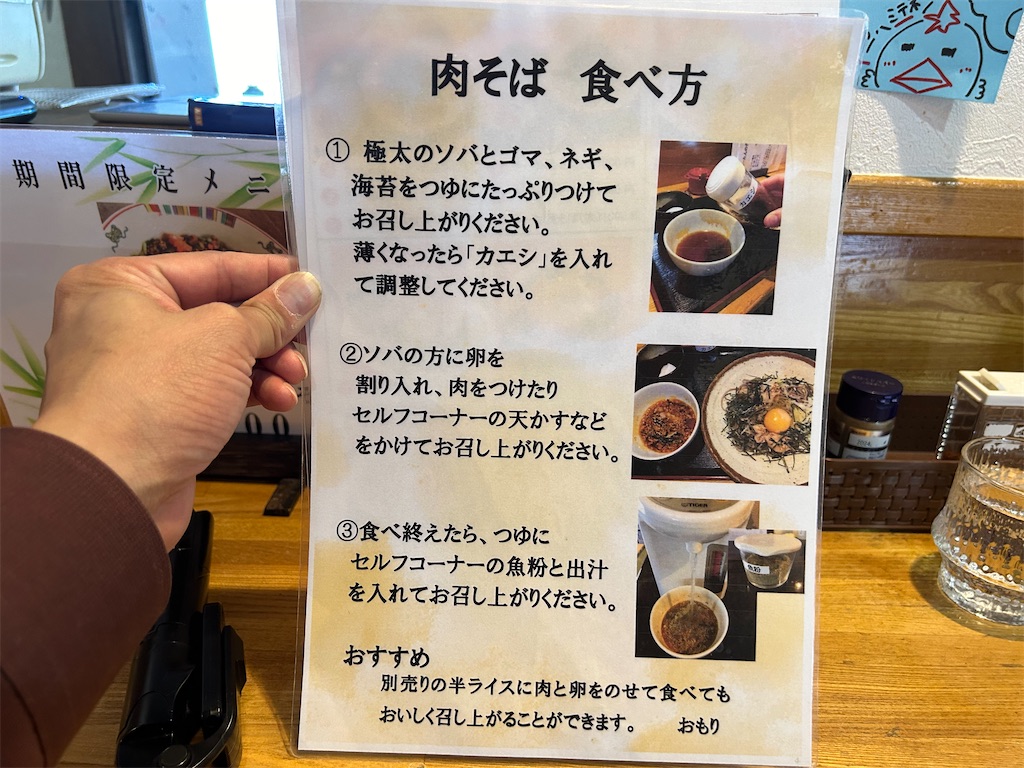 肉そば 食べ方
① 極太のソバとゴマ、ネギ、
海苔をつゆにたっぷりつけて
お召し上がりください。
薄くなったら「カエシ」を入れ
て調整してください。
カエシ
②ソバの方に卵を
割り入れ、肉をつけたり
セルフコーナーの天かすなど
をかけてお召し上がりください。
③食べ終えたら、つゆに
セルフコーナーの魚粉と出汁
を入れてお召し上がりください。
TIGER
魚粉
おすすめ
別売りの半ライスに肉と卵をのせて食べても
おいしく召し上がることができます。 おもり
期間限定メニ
00